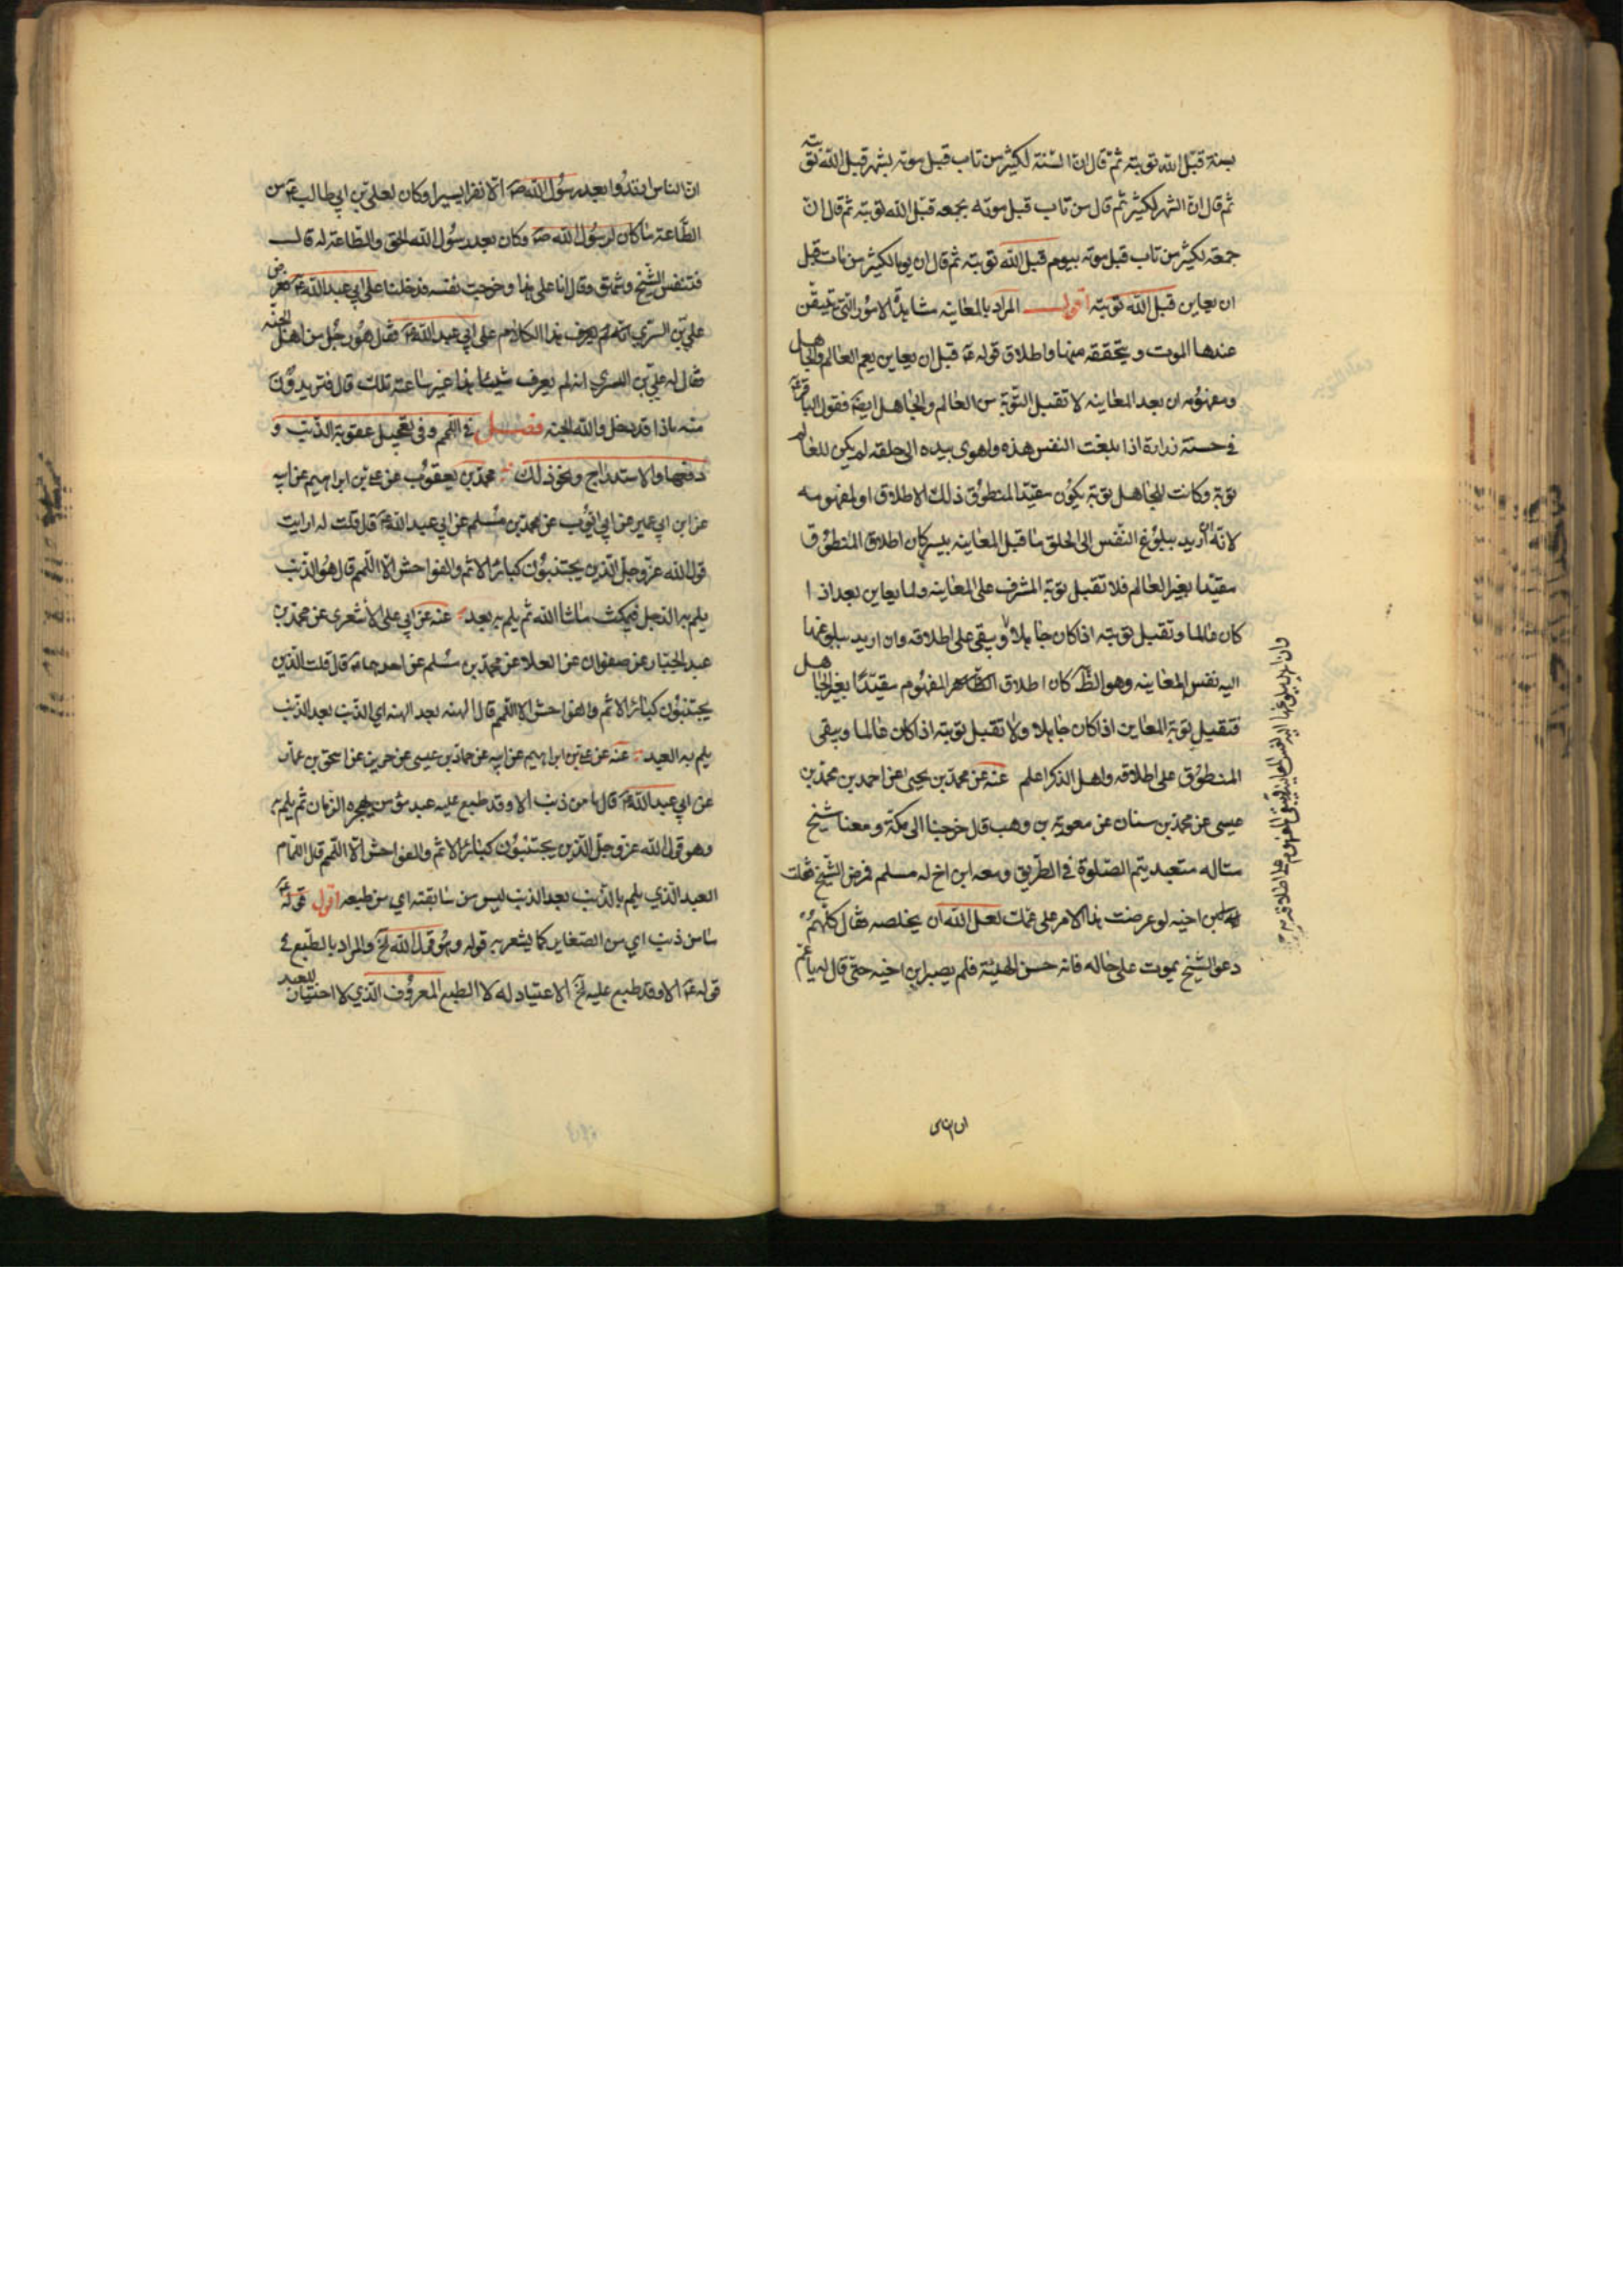 بسنة قبل الله توبته ثم قال ان السنة لكثير من تاب قبل موته بشهر قبل الله توبته
ثم قال ان الشهر لكثير ثم قال من تاب قبل موته بجمعه قبل الله توبته ثم قال ان
جمعة لكثير من تاب قبل موته بيوم قبل الله توبته ثم قال ان يوما لكثير من تاب قبل
ان يعاين قبل الله توبته اقول المراد بالمعاينه مشاهدة الامور التي تيقن
عندها الموت و يتحققه منها واطلاق قوله ع قبل ان يعاين يعم العالم والجاهل
ومفهومه ان بعد المعاينه لا تقبل التوبة من العالم والجاهل ايضا فقول الباقر ع
في حسنة زرارة اذا بلغت النفس هذه واهوى بيده الى حلقه لم يكن للعالم
توبة وكانت للجاهل توبة يكون مقيدا لمنطوق ذلك الاطلاق او لمفهومه
لانه ان اريد ببلوغ النفس الى الحلق ما قبل المعاينه بيسير كان اطلاق المنطوق
مقيدا بغير العالم فلا تقبل توبة المشرف على المعاينه ولما يعاين بعد اذا
كان عالما وتقبل توبته اذا كان جاهلا ويبقى على اطلاقه وان اريد ببلوغها
اليه نفس المعاينه وهو الظ كان اطلاق المفهوم مقيدا بغير الجاهل
فتقبل توبة المعاين اذا كان جاهلا ولا تقبل توبته اذا كان عالما ويبقى
المنطوق على اطلاقه واهل الذكر اعلم عنه عن محمد بن يحيى عن احمد بن محمد بن
عيسى عن محمد بن سنان عن معوية بن وهب قال خرجنا الى مكة و معنا شيخ
متاله متعبد يتم الصلوة في الطريق ومعه ابن اخ له مسلم فمرض الشيخ فقلت
لابن اخيه لو عرضت هذا الامر على عمك لعل الله ان يخلصه فقال كلهم
دعوا الشيخ يموت على حاله فانه حسن الهيئة فلم يصبر ابن اخيه حتى قال له يا عم
ان الناس
وان اريد ببلوغها اليه نفس المعاينة فيبقى المفهوم على اطلاقه
ان الناس ارتدوا بعد رسول الله ص الا نفرا يسيرا وكان لعلي بن ابي طالب ع من
الطاعة ما كان لرسول الله ص وكان بعد رسول الله الحق والطاعة له قال
فتنفس الشيخ وشهق وقال انا على هذا وخرجت نفسه فدخلنا على ابي عبد الله ع فعرض
علي بن السري هذا الكلام على ابي عبد الله ع فقال هو رجل من اهل الجنه
فقال له علي بن السري انه لم يعرف شيئا هذا غير ساعته تلك قال فتريدون
منه ماذا قد دخل والله الجنه فصل في اللمم وفي تعجيل عقوبة الذنب و
دفعها والاستدراج ونحو ذلك محمد بن يعقوب عن علي بن ابراهيم عن ابيه
عن ابن ابي عمير عن ابي ايوب عن محمد بن مسلم عن ابي عبد الله ع قال قلت له ارايت
قول الله عز وجل الذين يجتنبون كبائر الاثم والفواحش الا اللمم قال هو الذنب
يلم به الرجل فيمكث ما شا الله ثم يلم به بعد عنه عن ابي علي الاشعري عن محمد بن
عبد الجبار عن صفوان عن العلا عن محمد بن مسلم عن احدهما ع قال قلت الذين
يجتنبون كبائر الاثم والفواحش الا اللمم قال الهنه بعد الهنه اي الذنب بعد الذنب
يلم به العبد عنه عن علي بن ابراهيم عن ابيه عن حماد بن عيسى عن حريز عن اسحق بن عمار
عن ابي عبد الله ع قال ما من ذنب الا وقد طبع عليه عبد مؤمن يهجره الزمان ثم يلم به
وهو قول الله عز وجل الذين يجتنبون كبائر الاثم والفواحش الا اللمم قال اللمام
العبد الذي يلم بالذنب بعد الذنب ليس من سابقته اي من طبيعه اقول قوله ع
ما من ذنب اي من الصغاير كما يشعر به قوله وهو قول الله الخ والمراد بالطبع في
قوله ع الا وقد طبع عليه الخ الاعتياد له لا الطبع المعروف الذي لا اختيار للعبد